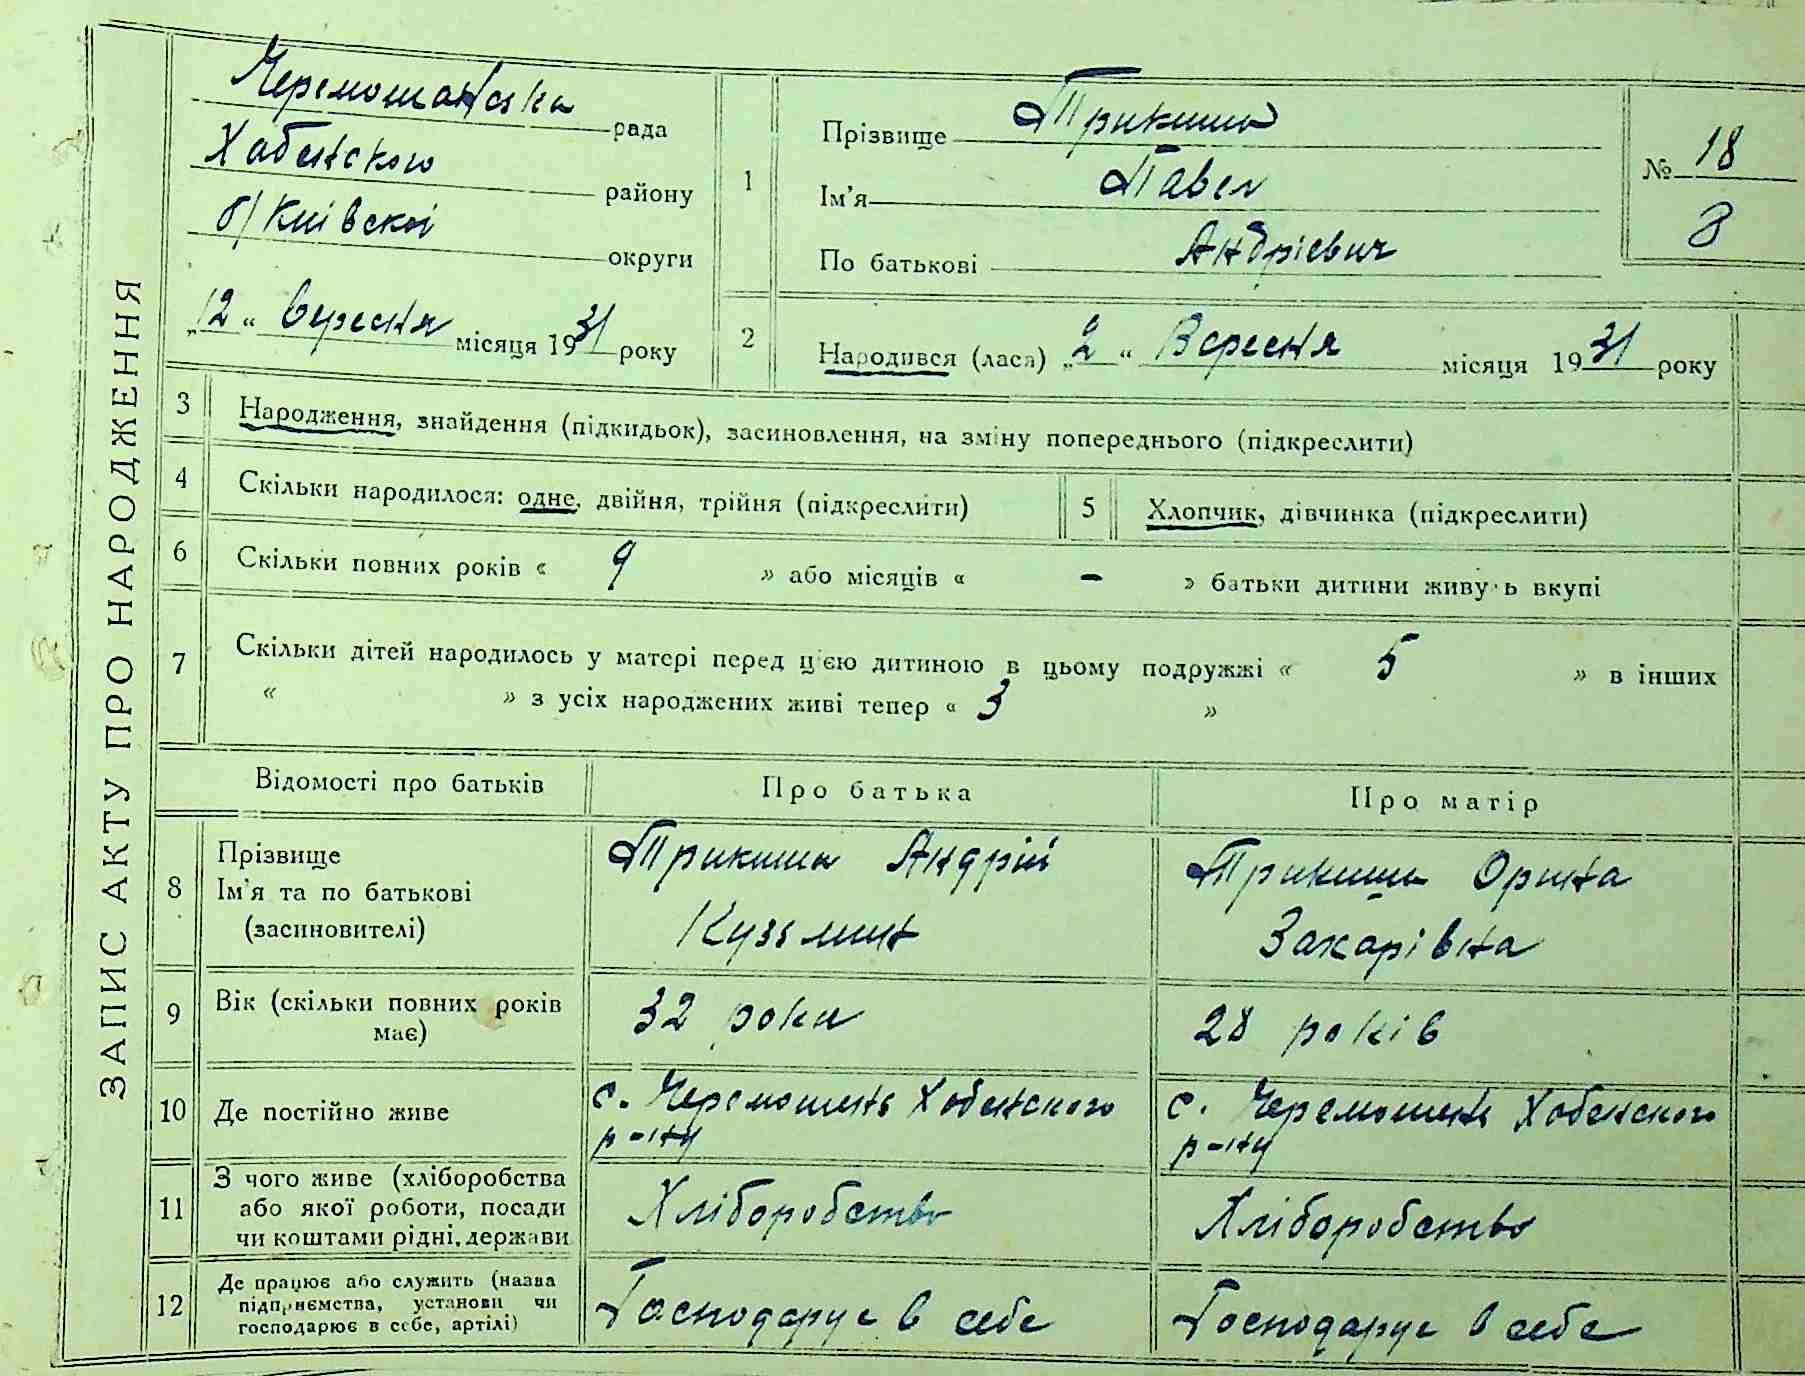 ЗАПИС АКТУ ПРО НАРОДЖЕННЯ
Черемошанська рада
Хабенського району
б/Київської округи
„12“ вересня місяця 1931 року
1
Прізвище Трикиша
Ім'я Павел
По батькові Андрієвич
№ 18
8
2
Народився (лася) „2“ Вересня місяця 1931 року
3 Народження, знайдення (підкидьок), засиновлення, на зміну попереднього (підкреслити)
4 Скільки народилося: одне, двійня, трійня (підкреслити)
5 Хлопчик, дівчинка (підкреслити)
6 Скільки повних років « 9 » або місяців « - » батьки дитини живуть вкупі
7 Скільки дітей народилось у матері перед цією дитиною в цьому подружжі « 5 » в інших
« » з усіх народжених живі тепер « 3 »
Відомості про батьків
Про батька
Про матір
8
Прізвище
Ім'я та по батькові
(засиновителі)
Трикиша Андрій
Кузьмин
Трикиша Орина
Захарівна
9
Вік (скільки повних років
має)
32 роки
28 років
10 Де постійно живе
с. Черемошня Хабенського
р-ну
с. Черемошня Хабенського
р-ну
11
З чого живе (хліборобства
або якої роботи, посади
чи коштами рідні, держави
Хліборобство
Хліборобство
12
Де працює або служить (назва
підприємства, установи чи
господарює в себе, артілі)
Господарує в себе
Господарує в себе